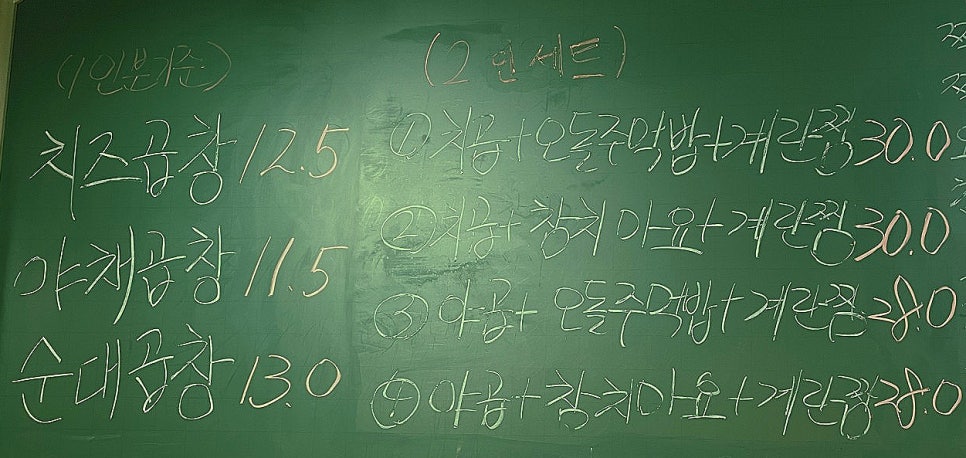 (1인분기준)
치즈곱창 12.5
야채곱창 11.5
순대곱창 13.0
(2인세트)
① 치곱+오돌주먹밥+계란찜 30.0
② 치곱+참치마요+계란찜 30.0
③ 야곱+오돌주먹밥+계란찜 28.0
④ 야곱+참치마요+계란찜 28.0